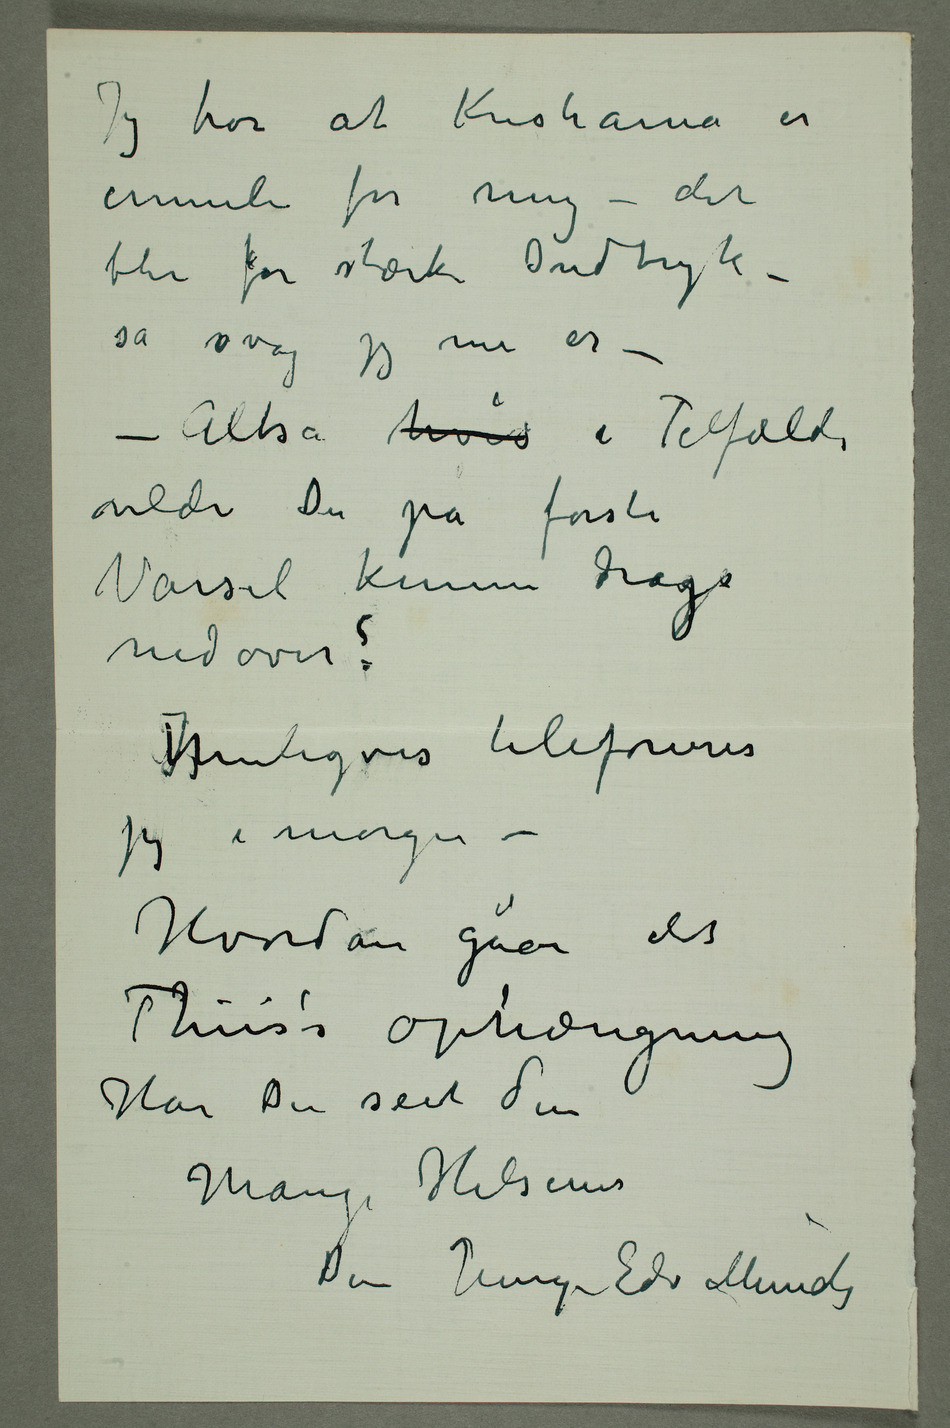 Jeg tror at Kristiania er
emmele for mig – det
blir for stærke Indtryk –
så svag jeg nu er –
– Altså hvis i Tilfælde
vilde Du på første
Varsel kunne drage
nedover?
Muligvis telefoneres
jeg imorgen –
Hvordan gåar det
Thiis's ophængning
Har Du seet den
Mange Hilsener
Din Edv Munch